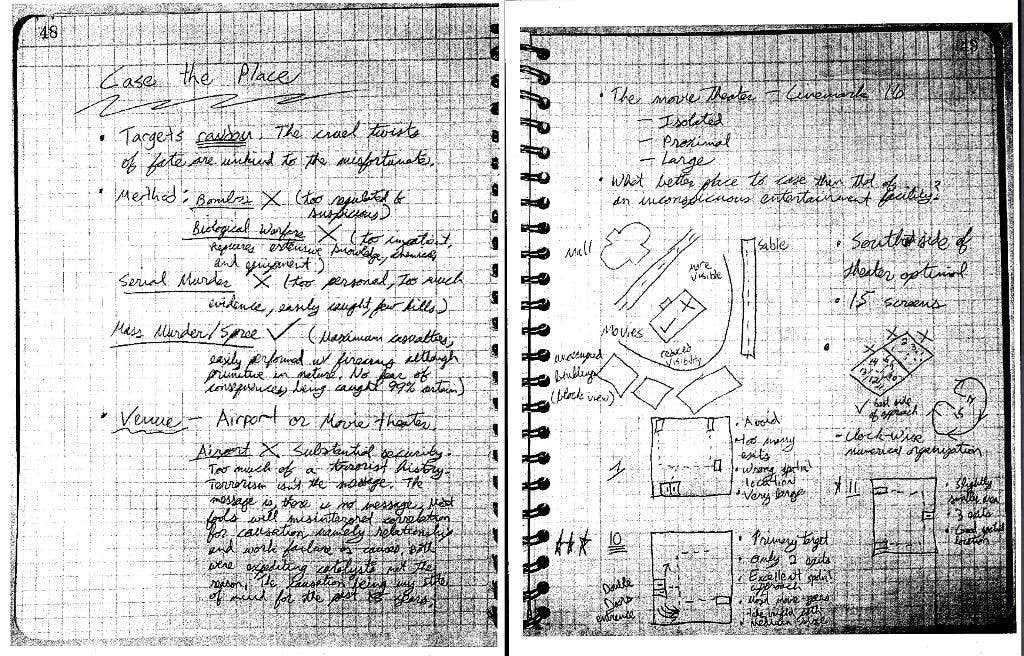 48
Case the Place
• Targets random. The cruel twists
of fate are unkind to the misfortunate.
• Method: Bombs X (too regulated &
suspicious)
Biological Warfare X (too impatient,
requires extensive knowledge, chemicals
and equipment)
Serial Murder X (too personal, too much
evidence, easily caught, few kills)
Mass Murder/Spree ✓ (Maximum casualties,
easily performed w/ firearms although
primitive in nature. No fear of
consequences, being caught 99% certain)
• Venue — Airport or Movie theater.
Airport X Substantial security.
Too much of a terrorist history.
Terrorism isn't the message. The
message is, there is no message. Most
fools will misinterpret correlation
for causation, namely relationship
and work failure as causes. Both
were expediting catalysts not the
reason. The causation being my state
of mind for the past years.
49
• The movie theater — Cinemark 16
— Isolated
— Proximal
— Large
• What better place to case than that of
an inconspicuous entertainment facility?
Mall
more
visible
Sable
Movies
reduced
visibility
buildings
(block view)
• South side of
theater optimal
• 15 screens
✓ best side
of approach
— Clock-wise
numerical organization
1
• Avoid
• too many
exits
• Wrong
location
• Very large
* 11
• Slightly
• 3 exits
• Good
location
*** 10
Double
Doors
entrance
• Primary target
• Only 2 exits
• Excellent
• Medium size